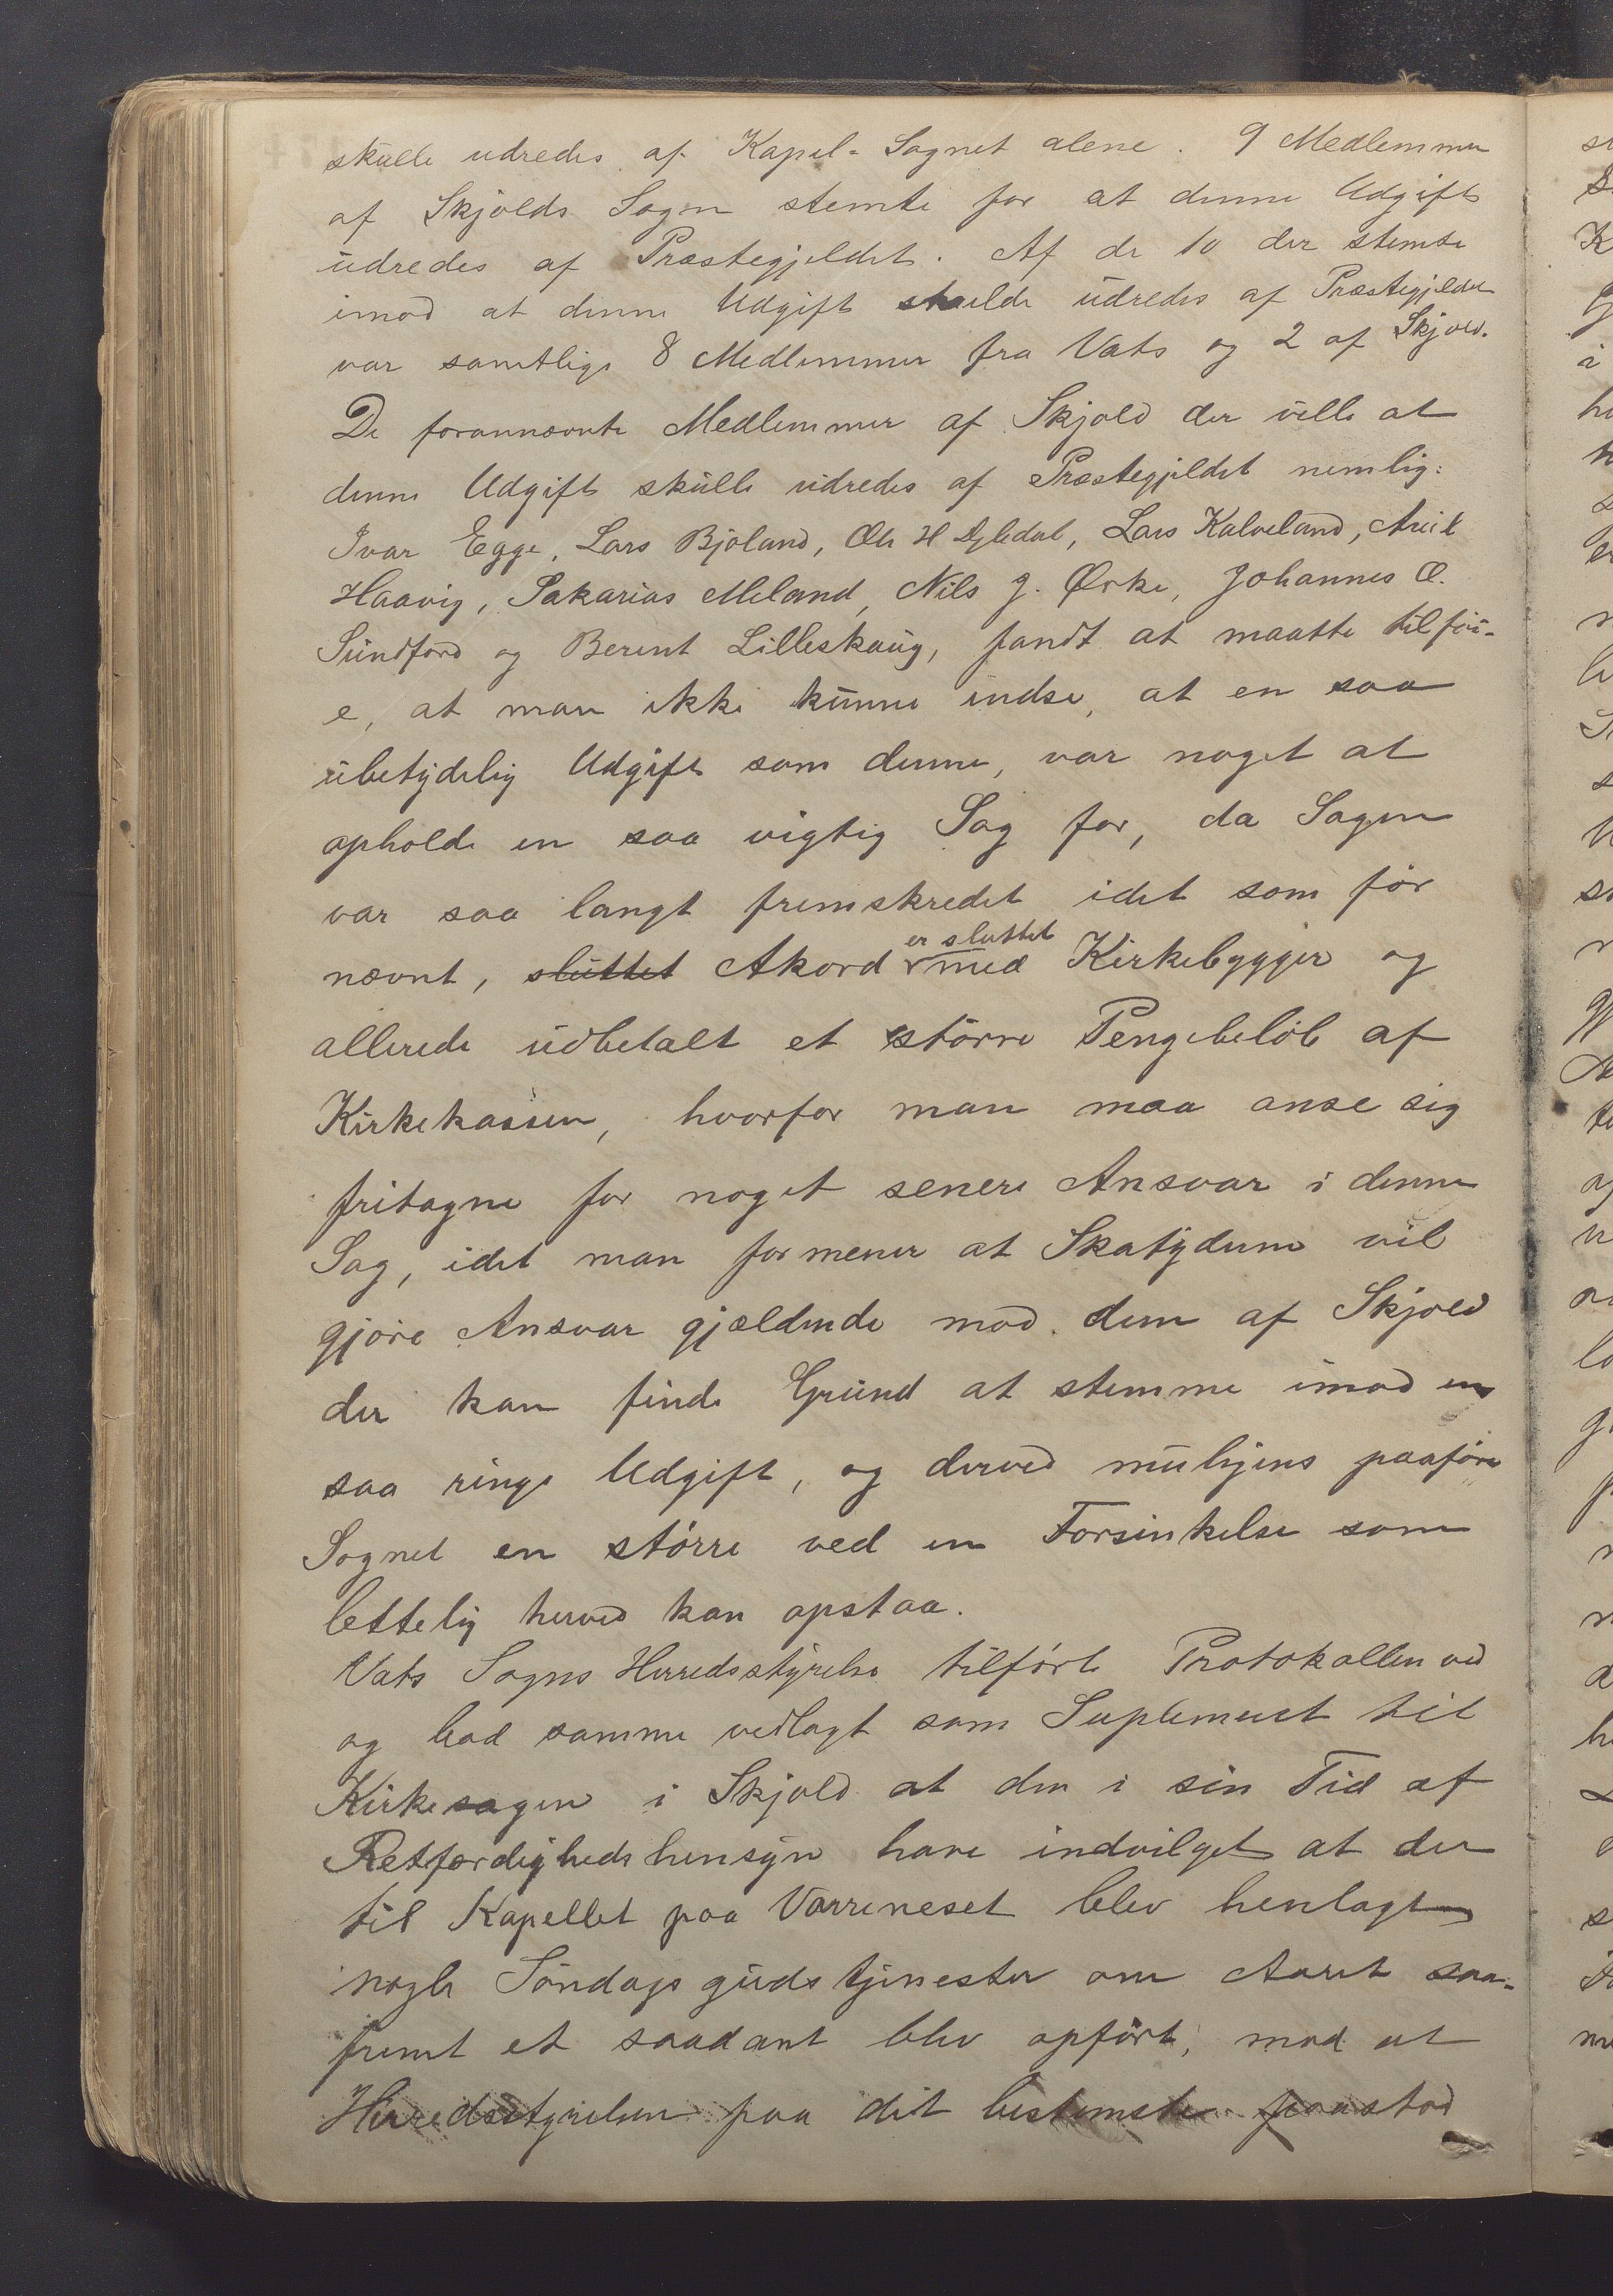 skulle udredes af Kapel-Sognet alene. 9 Medlemmer
af Skjolds Sogn stemte for at denne Udgift
udredes af Præstegjeldet. Af de 10 der stemte
imod at denne Udgift skulde udredes af Præstegjeldet
var samtlige 8 Medlemmer fra Vats og 2 af Skjold.
De forannævnte Medlemmer af Skjold der ville at
denne Udgift skulle udredes af Præstegjeldet nemlig:
Ivar Egge, Lars Bjoland, Ole H Dybdal, Lars Kalveland,
Haavig, Sakarias Meland, Nils J. Ørke, Johannes O.
Sundfør og Berent Lilleskaug, fandt at maatte tilföi-
e, at man ikke kunne indse, at en saa
ubetydelig Udgift som denne, var noget at
opholde en saa vigtig Sag for, da Sagen
var saa langt fremskredet idet som för
nævnt, sluttet Akord er sluttet med Kirkebygger og
allerede udbetalt et större Pengebelöb af
Kirkekassen, hvorfor man maa anse sig
fritagne for noget senere Ansvar i denne
Sag, idet man formener at Skatyderne vil
gjöre Ansvar gjældende mod dem af Skjold
der kan finde Grund at stemme imod en
saa ringe Udgift, og derved muligens paaföre
Sognet en större ved en Forsinkelse som
lettelig herved kan opstaa.
Vats Sogns Herredsstyrelse tilförte Protokollen ved
og bad samme vedlagt som Suplement til
Kirkesagen i Skjold at den i sin Tid af
Retfærdigheds hensyn have indvilget at der
til Kapellet paa Vorreneset blev henlagt
nogle Söndags gudstjenester om Aaret saa-
fremt et saadant blev opfört, mod at
Herredsstyrelsen paa det bestemteste paastod